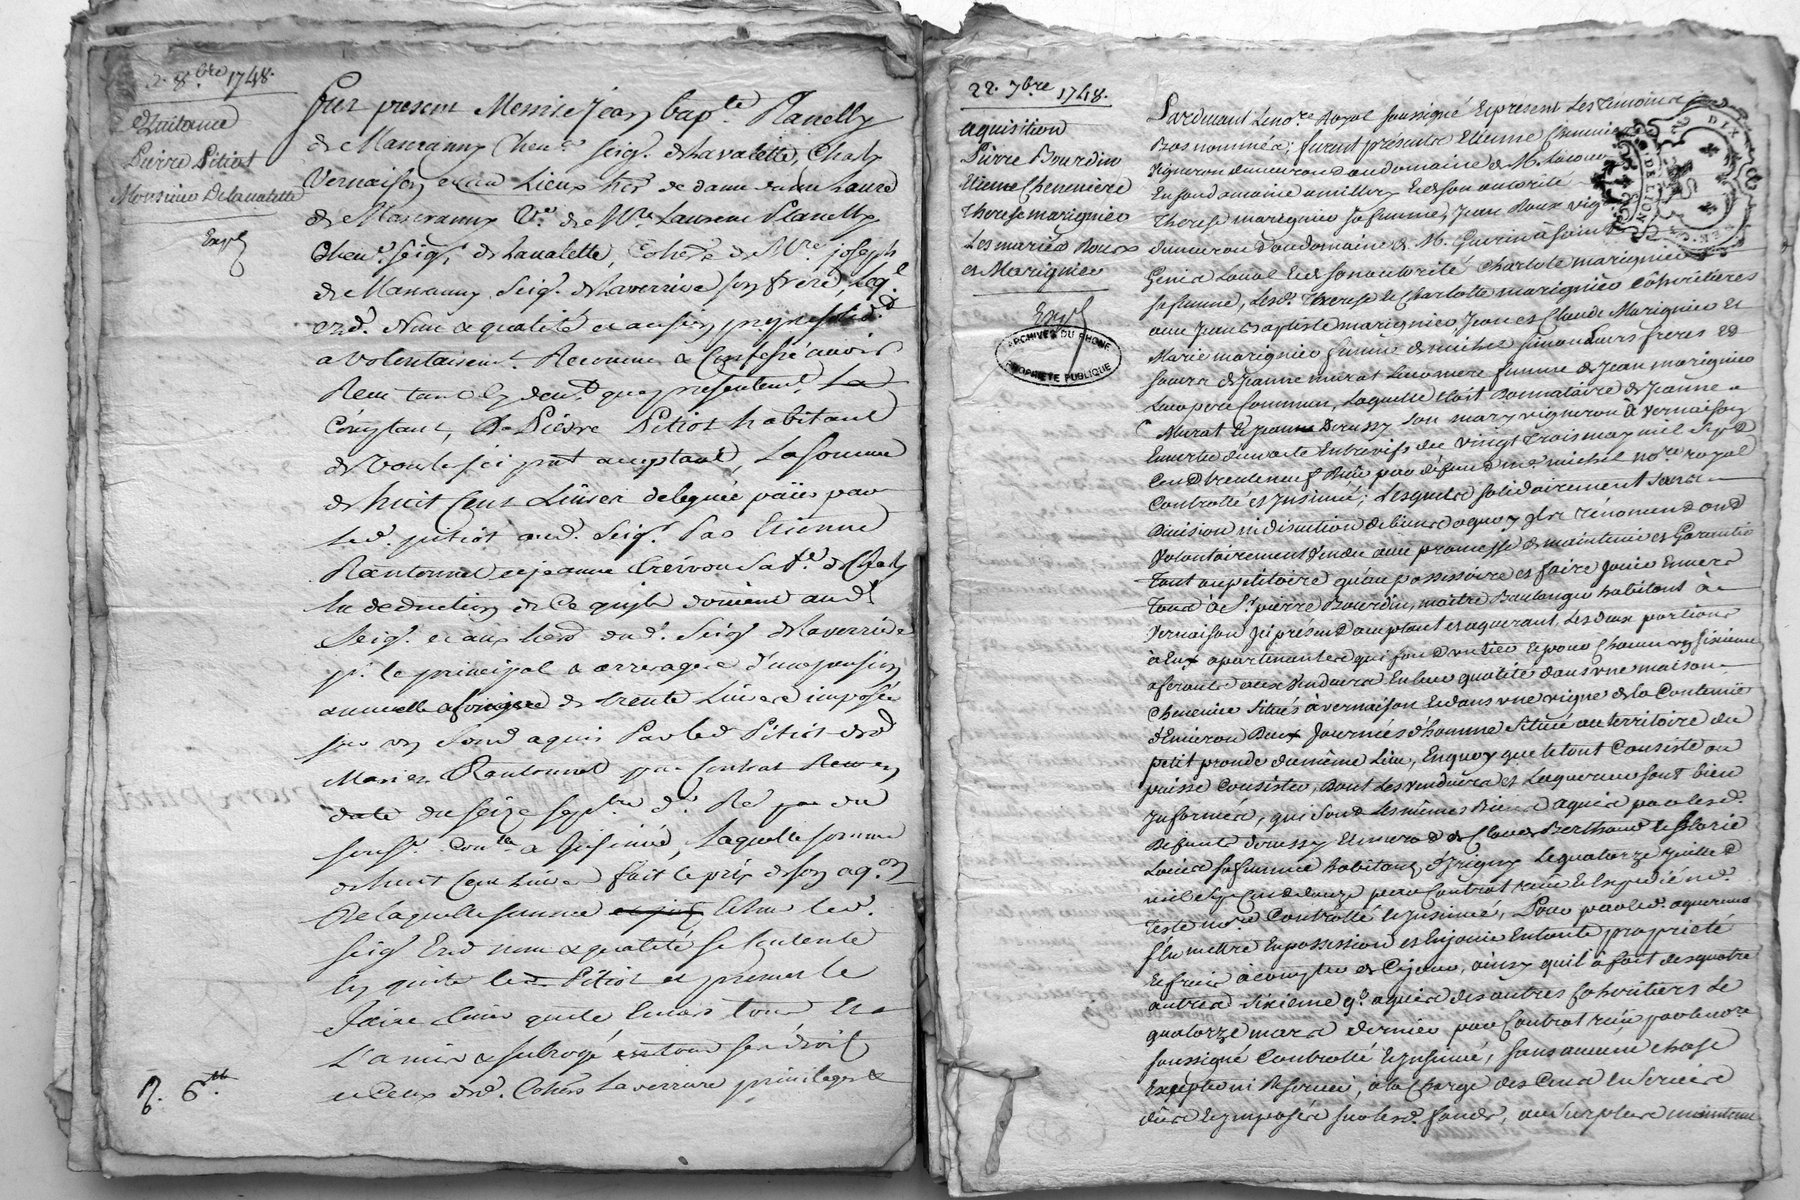 2. 8.bre 1748.
Quitance
Pierre Pitiot
Monsieur Delavalette
Exp.
fut present Messire Jean bap.te Planelly
de Mascranny Chev.r seig.r de Lavalette, Charly
Vernaison et au
de Mascranny V.e de M.re Laurent Planelly
Chev.r seig.r de Lavalette, Coher. de M.re joseph
de Mascranny seig.r de Laverrine son frere,
a volontairem.t Reconnu & Confessé avoir
Receu tant cy dev.t que presentem.t
Comptant, De Pierre Pitiot habitant
de Vourles ici p.nt acceptant, La somme
de huit Cent Livres deleguée païer par
led. pitiot aud. seig.r Par Etienne
Rantonnet et jeanne de Charly
en deduction de Ce qu'ils doivent aud.
seig.r et aux her. dud. seig.r de Laverrine
p.r le principal & arrerages d'une pension
annuelle de trente Livres imposée
sur un fond aquis Par led Pitiot desd
Mariés Rantonnet par Contrat Receu en
date du seize sept.bre d.r
sous.né Con.lé & Insinué, Laquelle somme
de huit Cent Livres fait le prix de son aq.on
De laquelle somme led.
seig.r Esd nom & qualité se Contente
en quitte led Pitiot et promet le
faire tenir quite Envers tous Et
L'a mis & subrogé en tous ses droits
et Ceux desd. Coher. Laverrine privileges &
R. 6.tt
22. 7bre 1748.
aquisition
Pierre Bourdin
Etienne Cheneviere
Therese marignier
Les mariés Roux
et Marignier
Exp.
ARCHIVES DU RHONE
PROPRIETE PUBLIQUE
DE LION
DIX
Pardevant Le no.re Royal soussigné Et présent Les temoins
Bas nommés; furent présents Etienne Chenevier
vigneron demeurant au domaine de M.
En son domaine a millery Et de son autorité
Therese marignier sa femme, Jean Roux vig
demeurant au domaine de M. Guerin à saint
Genis Laval Et de son autorité Charlote marignier
sa femme, Lesd. Therese et Charlote marignier Cohéritieres
avec Jean Baptiste marignier, Jean et Claude Marignier et
Marie marignier femme de michel simon Leurs freres et
soeurs de Jeanne murat Leur mere femme de Jean marignier
Leur pere Commun, Laquelle étoit Donnataire de Jeanne
Murat Et Jeanne son mary vigneron de vernaison
En vertu de un acte Entrevifs du vingt trois may mil sept
Cent trente neuf Reçu par défunt m.e michel no.re royal
Controllé et insinué; Lesquels solidairement sans
division ni discution de biens a quoy ils rénoncent ont
volontairement vendu avec promesse de maintenir et Garantir
Tant au pétitoire qu'au possessoire et faire Jouir Envers
Tous à S.r pierre Bourdin, maître Boulanger habitant à
vernaison Ici présent acceptant et aquerant, Les deux portions
à Eux apartenantes qui sont un tier Et pour Chacun un sixieme
aferant aux vendeurs En leur qualité dans une maison
situés à vernaison Et dans une vigne de la Contenüe
d'Environ Deux Journées d'homme située au territoire du
petit du même Lieu, En quoy que le tout Consiste ou
puisse Consister, Dont Les vendeurs et Laquereur sont bien
Informés, qui sont Les mêmes Biens aquis par lesd.
défunts Et murat de Claude Berthaud et Marie
sa femme habitants d'Irigny Le quatorze juillet
mil sept Cent douze par Contrat reçu Et Expédié m.e
Teste no.re Controllé et insinué, Pour par led. aquereur
s'en mettre En possession et En jouir En toute propriété
Et fruits à compter de Ce jour, ainsy qu'il à fait des quatre
autres sixieme qu'il aquis des autres Cohéritiers Le
quatorze mars dernier par Contrat reçu par le no.re
soussigné Controllé Et insinué, sans aucune chose
Excepter ni Réserver, à la Charge des Cens En servis
dus et imposés sur lesd. fonds, au surplus maintenu